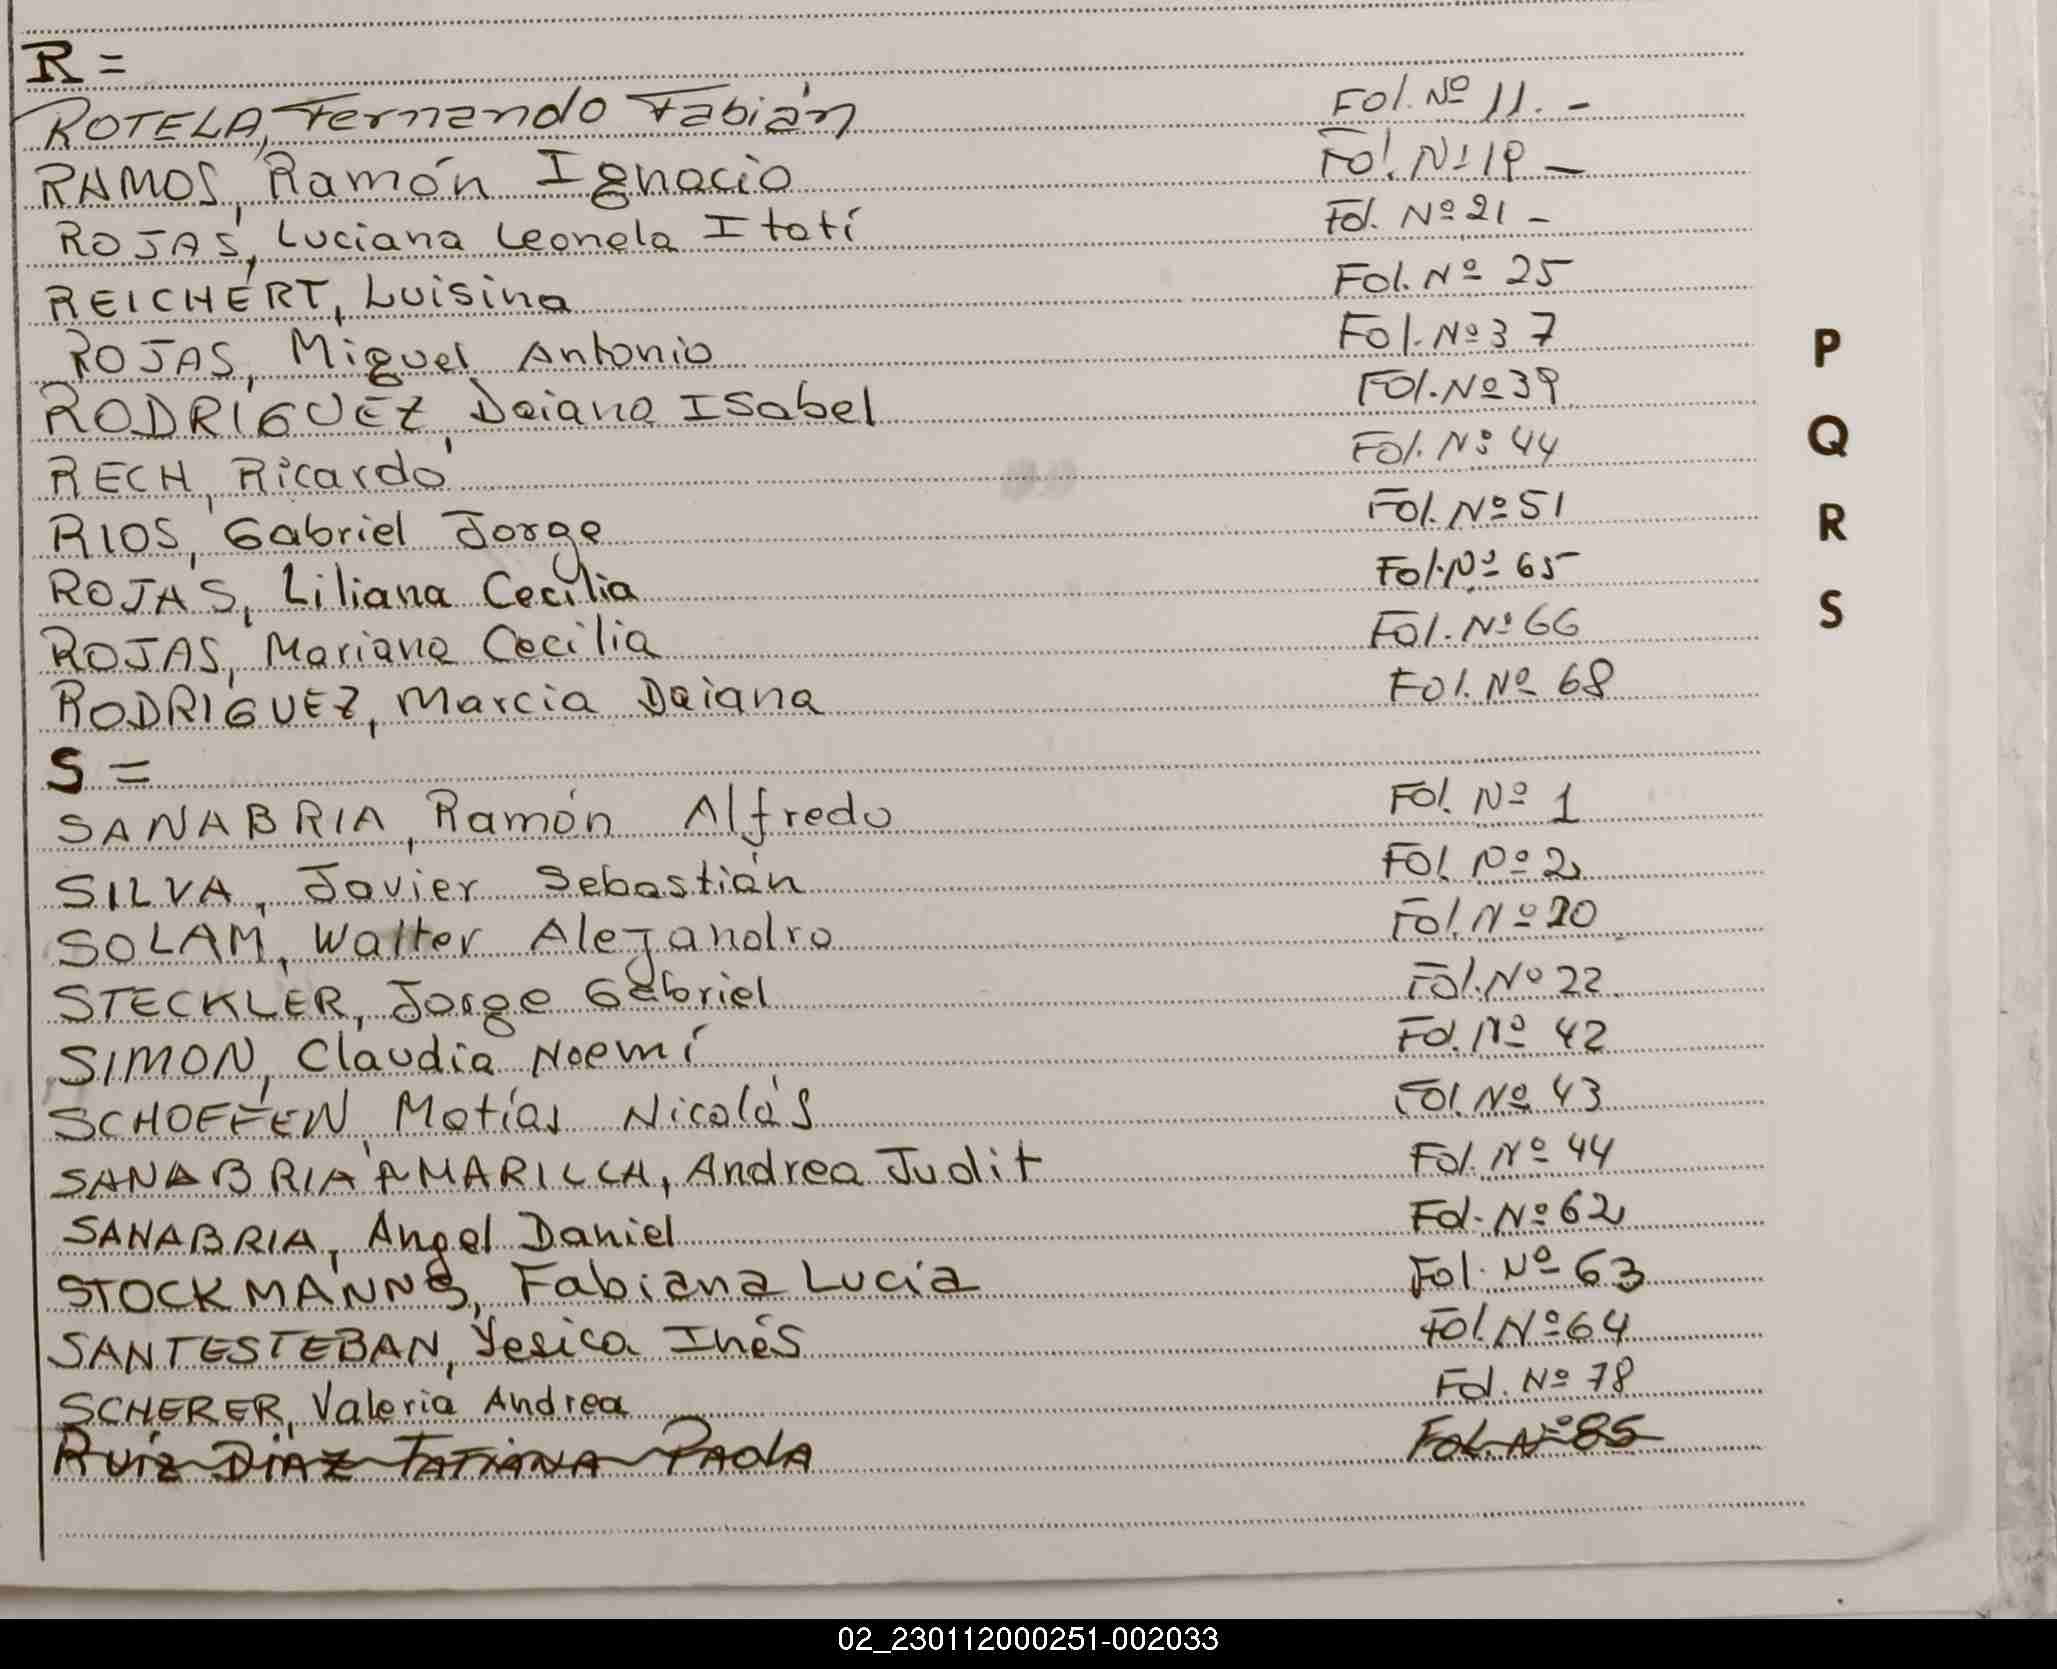 R =
ROTELA, Fernando Fabián Fol. Nº 11. -
RAMOS, Ramón Ignacio Fol. Nº 19 -
ROJAS, Luciana Leonela Itatí Fol. Nº 21 -
REICHERT, Luisina Fol. Nº 25
ROJAS, Miguel Antonio Fol. Nº 37
RODRIGUEZ, Daiana Isabel Fol. Nº 39
RECH, Ricardo Fol. Nº 44
RIOS, Gabriel Jorge Fol. Nº 51
ROJAS, Liliana Cecilia Fol. Nº 65
ROJAS, Mariana Cecilia Fol. Nº 66
RODRIGUEZ, Marcia Daiana Fol. Nº 68
S =
SANABRIA, Ramón Alfredo Fol. Nº 1
SILVA, Javier Sebastián Fol. Nº 2
SOLAM, Walter Alejandro Fol. Nº 20
STECKLER, Jorge Gabriel Fol. Nº 22
SIMON, Claudia Noemí Fol. Nº 42
SCHOEFFEN, Matías Nicolás Fol. Nº 43
SANABRIA AMARILLA, Andrea Judit Fol. Nº 44
SANABRIA, Angel Daniel Fol. Nº 62
STOCKMANNS, Fabiana Lucía Fol. Nº 63
SANTESTEBAN, Yesica Inés Fol. Nº 64
SCHERER, Valeria Andrea Fol. Nº 78
RUIZ DIAZ TATIANA PAOLA Fol. Nº 85
P
Q
R
S
02_230112000251-002033